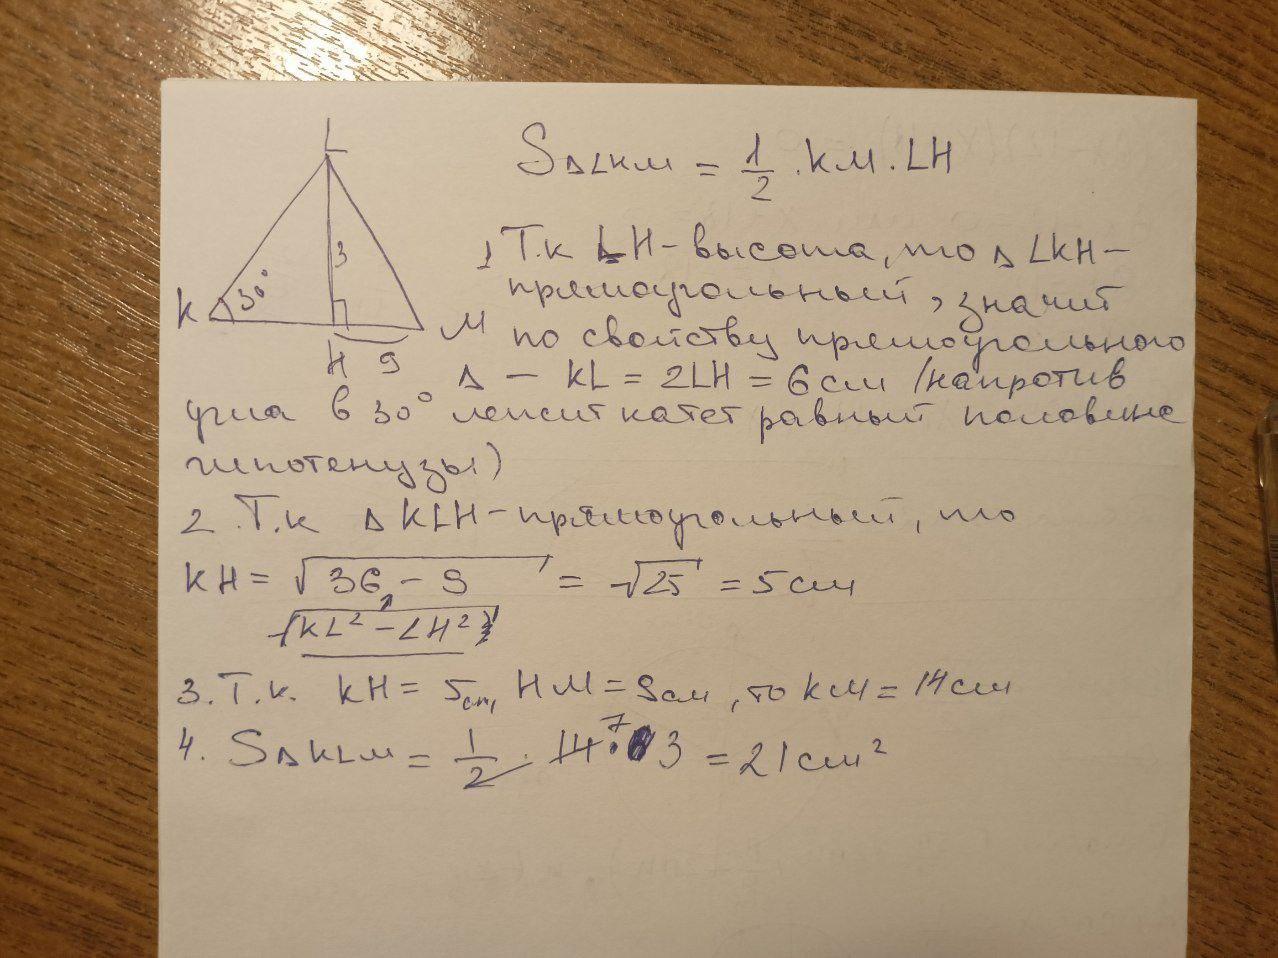 L
K
30°
3
H
9
M
S△LKM = 1/2 · KM · LH
1 Т.к LH - высота, то △ LKH -
прямоугольный, значит
по свойству прямоугольного
△ - KL = 2LH = 6 см (напротив
угла в 30° лежит катет равный половине
гипотенузы)
2. Т.к △ KLH - прямоугольный, то
KH = √36 - 9 = √25 = 5 см
(KL² - LH²)
3. Т.к. KH = 5 см, HM = 9 см, то KM = 14 см
4. S△KLM = 1/2 · 14 7 · 3 = 21 см²